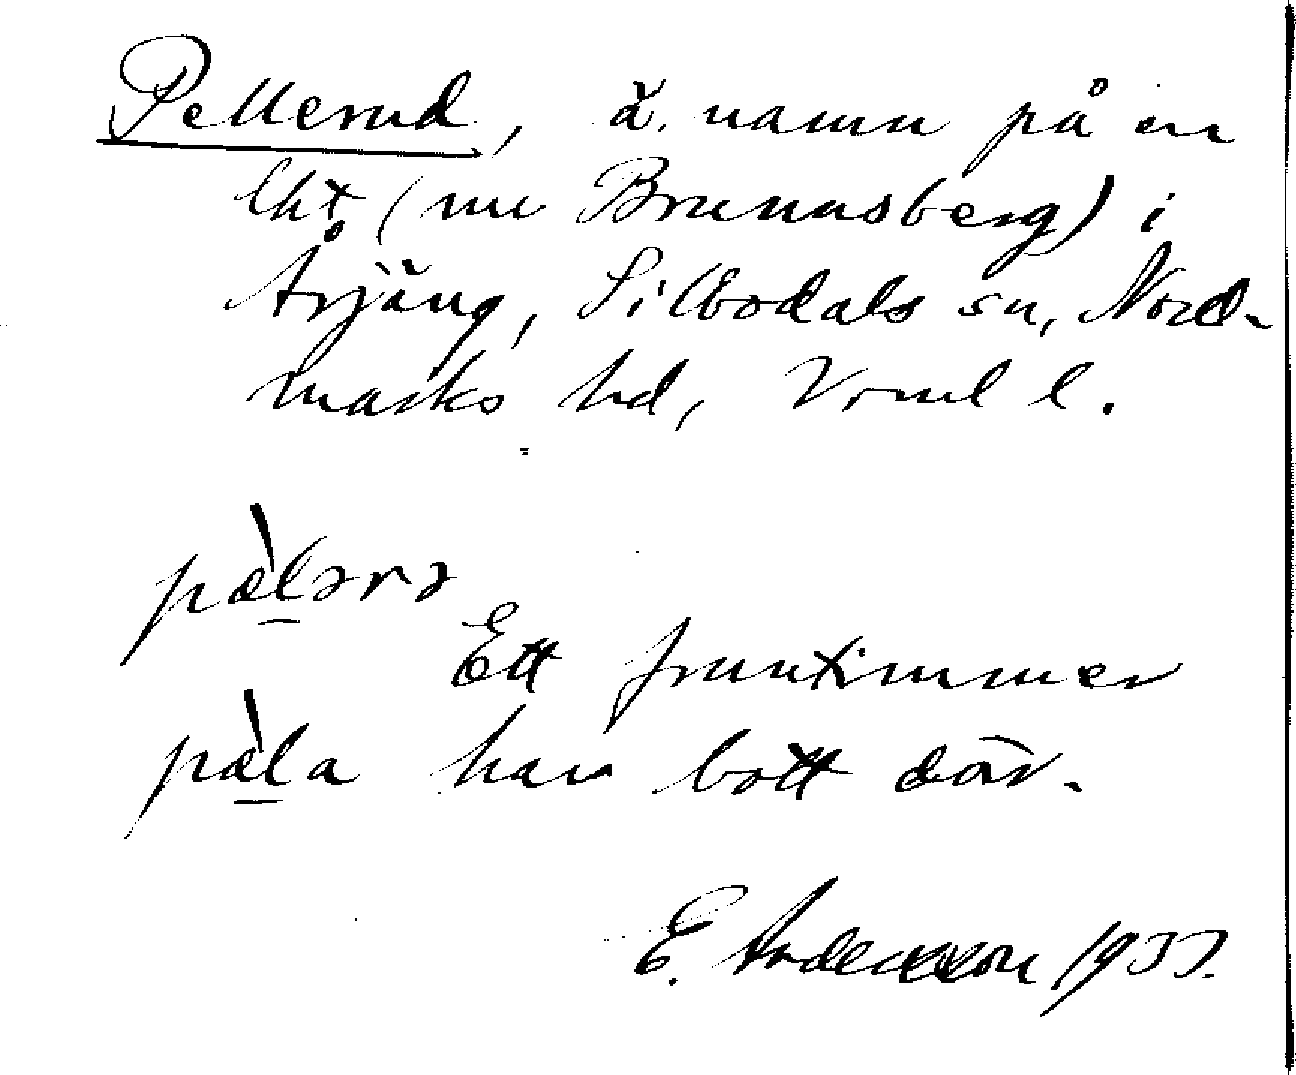 Pellerud, ä. namn på en
lht (nu Brunnsberg) i
Årjäng, Silbodals sn, Nord-
marks hd, Vrml l.
pæ̀lərə
Ett fruntimmer
pæ̀la har bott där.
E. Andersson 1933.